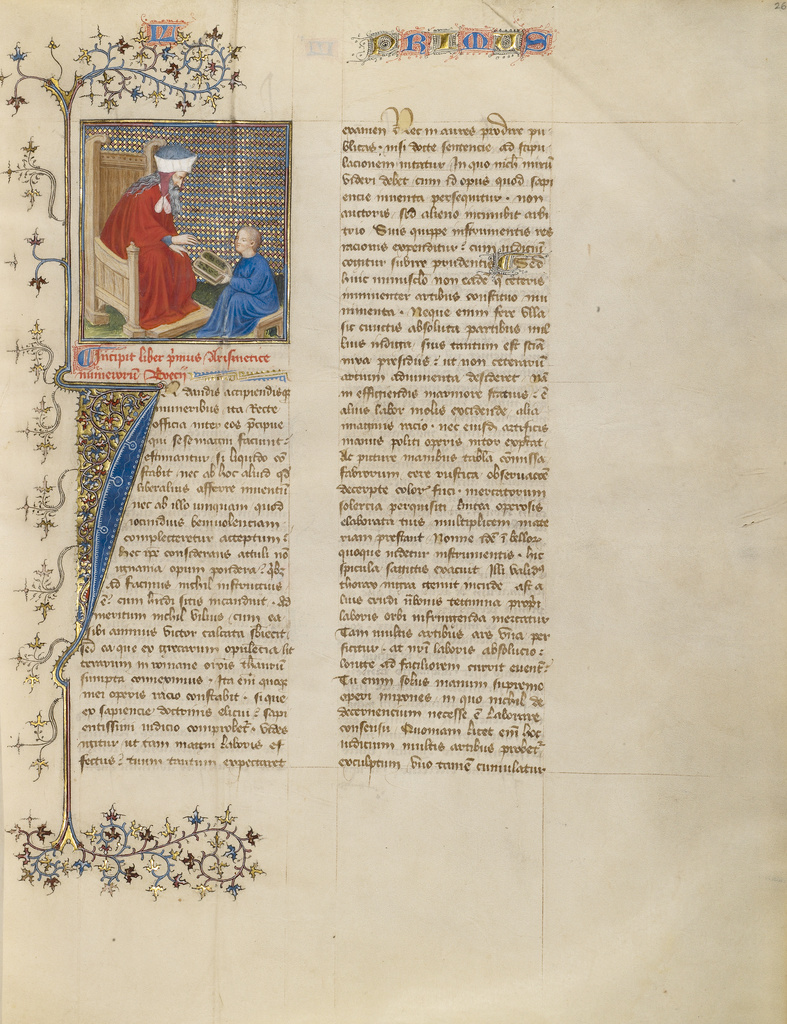 L I
PRIMUS
26
Incipit liber pmus Arismetice
numerorum Boecii
dandis accipiendisq
muneribus ita Recte
officia inter eos pcipue
qui sese magni faciunt :
estimantur . si liquido con
stabit . nec ab hoc aliud qd
liberalius afferre inuentum
nec ab illo umquam quod
iocundius beniuolenciam
complecteretur acceptum :
hec ipe considerans attuli non
ignauia opum pondera : qbz
ad facinus nichil instructius
e : cum hndi sitis incanduit . Ad
meritum nichil vilius . cum ea
sibi animus victor calcata sbiecit
sed ea que ex grecarum opulecia lit
terarum in romane oronis thaurum
sumpta conuenimus . Ita em quoqz
mei operis racio constabit . si que
ex sapiencie doctrinis elicui : sapi
entissimi iudicio comprobet . vides
igitur ut tam magni laboris ef
fectus : tuum tantum expectaret
examen : Nec in aures prodire pu
blicas . nisi docte sentencie ad stipu
lacionem nitatur In quo nichil mirum
videri debet cum id opus quod sapi
encie inuenta persequitur . non
auctoris sed alieno incumbit arbi
trio Suis quippe instrumentis res
racionis expenditur : cum iudicium
cogitur subire prudentis Sed
huic munusculo non eade q ceteris
imminenter artibus constituo mu
nimenta . Neque enim fere vlla
sic cunctis absoluta partibus nul
lius indiga suis tantum est scia
nixa presidiis : ut non ceterarum
artium adiumenta desideret . Nam
in effigiendis marmore statuis : e
alius labor molis excidende alia
imaginis racio . nec eiusde artificis
manus politi operis nitor expectat .
At picture manibus tabla comissa
fabrorum cere rustica obseruacione
decerpte color fuci . mercatorum
solercia perquisiti lintea operosis
elaborata tuis multiplicem mate
riam prestant . Nonne idem i bellorz
quoque uidetur instrumentis . hic
spicula sagittis exacuit Illi validus
thorax nigra gemit incude . ast a
lius crudi umbonis tegmina propri
laboris orbi infringenda mercatur
Tam multis artibus ars vna per
ficitur . at nri laboris absolucio :
longe ad faciliorem currit euent :
Tu enim solus manum supremo
operi impones . in quo nichil de
decernencium necesse e laborare
consensu Quoniam licet em hoc
iudicium multis artibus probet
excultum vno tamen cumulatur